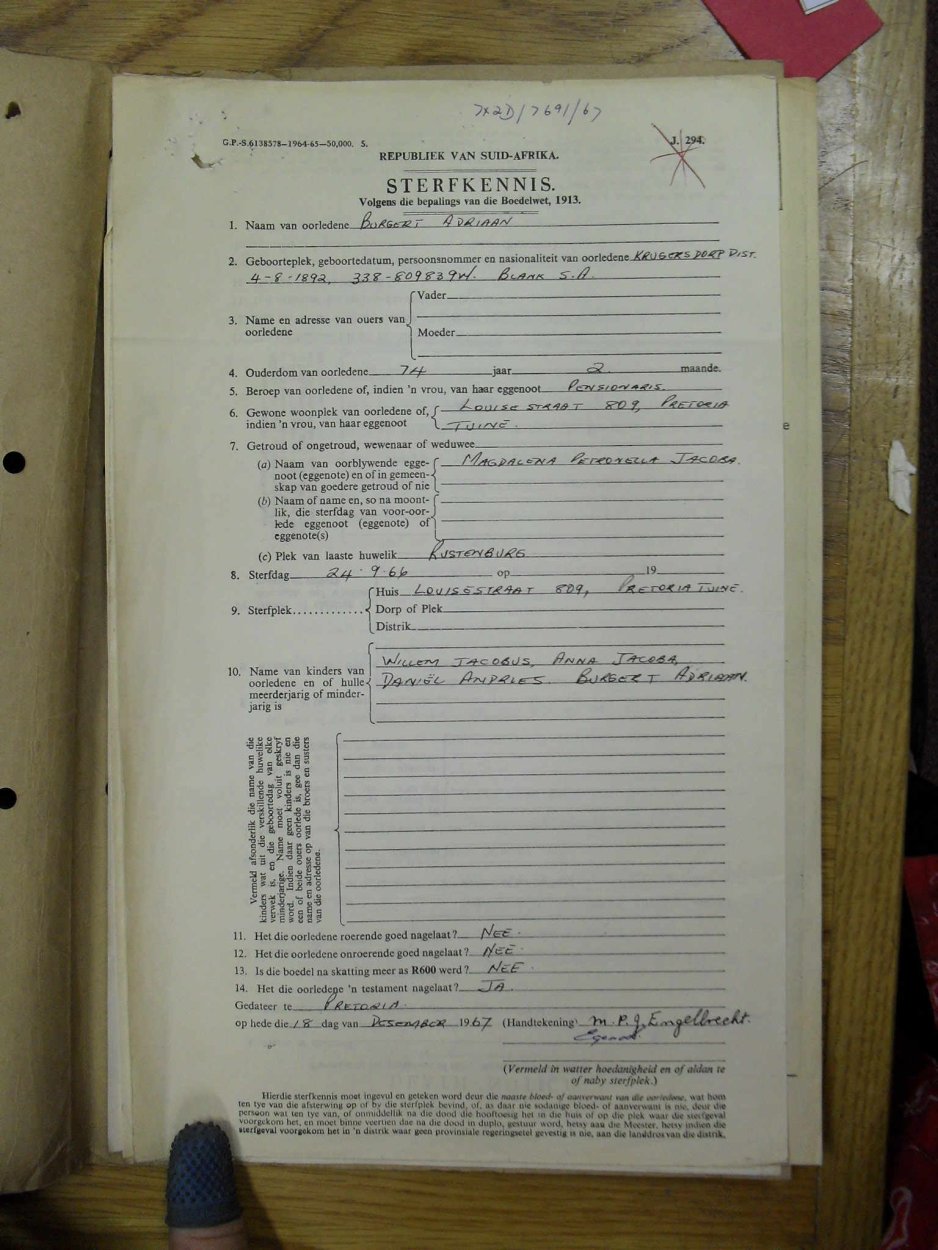 7691/67
G.P.-S.6138578—1964-65—50,000. S.
J. 294.
REPUBLIEK VAN SUID-AFRIKA.
STERFKENNIS.
Volgens die bepalings van die Boedelwet, 1913.
1. Naam van oorledene BURGERT ADRIAAN
2. Geboorteplek, geboortedatum, persoonsnommer en nasionaliteit van oorledene KRUGERSDORP DIST.
4-8-1892, 338-809839W. BLANK S.A.
3. Name en adresse van ouers van oorledene
Vader
Moeder
4. Ouderdom van oorledene 74 jaar 2 maande.
5. Beroep van oorledene of, indien 'n vrou, van haar eggenoot PENSIONARIS.
6. Gewone woonplek van oorledene of, indien 'n vrou, van haar eggenoot
LOUISE STRAAT 809, PRETORIA
TUINE.
7. Getroud of ongetroud, wewenaar of weduwee
(a) Naam van oorblywende eggenoot (eggenote) en of in gemeenskap van goedere getroud of nie
MAGDALENA PETRONELLA JACOBA.
(b) Naam of name en, so na moontlik, die sterfdag van voor-oorlede eggenoot (eggenote) of eggenote(s)
(c) Plek van laaste huwelik RUSTENBURG
8. Sterfdag 24.9.66 op 19
9. Sterfplek
Huis LOUISESTRAAT 809, PRETORIA TUINE.
Dorp of Plek
Distrik
10. Name van kinders van oorledene en of hulle meerderjarig of minderjarig is
WILLEM JACOBUS, ANNA JACOBA,
DANIËL ANDRIES. BURGERT ADRIAAN.
Vermeld afsonderlik die name van die
kinders wat uit die verskillende huwelike
verwek is, en die geboortedag van elke
minderjarige. Name moet voluit geskryf
word. Indien daar geen kinders is nie en
een of beide ouers oorlede is, gee dan die
name en adresse op van die broers en susters
van die oorledene.
11. Het die oorledene roerende goed nagelaat? NEE.
12. Het die oorledene onroerende goed nagelaat? NEE.
13. Is die boedel na skatting meer as R600 werd? NEE.
14. Het die oorledene 'n testament nagelaat? JA.
Gedateer te PRETORIA.
op hede die 18 dag van DESEMBER 1967 (Handtekening) M. P. J. Engelbrecht.
(Vermeld in watter hoedanigheid en of aldan te
of naby sterfplek.)
Hierdie sterfkennis moet ingevul en geteken word deur die naaste bloed- of aanverwant van die oorledene, wat hom
ten tye van die afsterwing op of by die sterfplek bevind, of, as daar nie sodanige bloed- of aanverwant is nie, deur die
persoon wat ten tye van, of onmiddellik na die dood die hooftoesig het in die huis of op die plek waar die sterfgeval
voorgekom het, en moet binne veertien dae na die dood in duplo, gestuur word, hetsy aan die Meester, hetsy indien die
sterfgeval voorgekom het in 'n distrik waar geen provinsiale regeringsetel gevestig is nie, aan die landdros van die distrik.